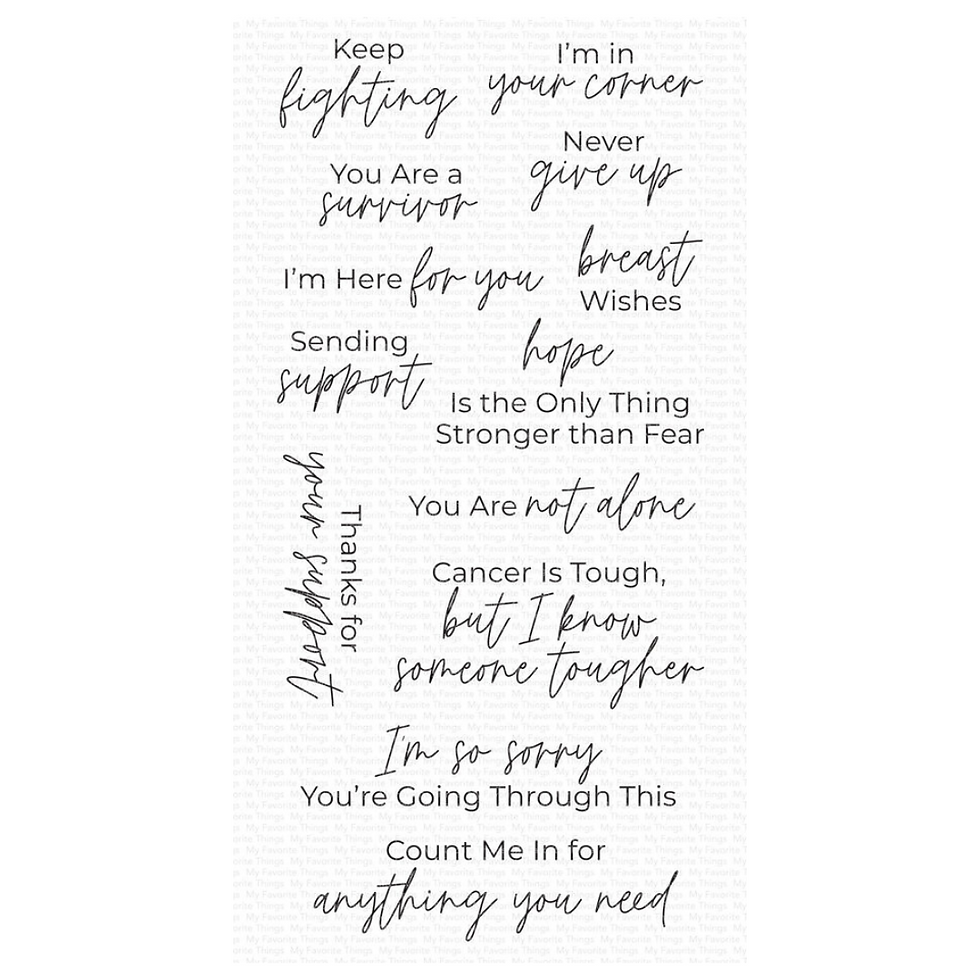 Keep
fighting
I'm in
your corner
You Are a
survivor
Never
give up
I'm Here for you
breast
Wishes
Sending
support
hope
Is the Only Thing
Stronger than Fear
Thanks for
your support
You Are not alone
Cancer Is Tough,
but I know
someone tougher
I'm so sorry
You're Going Through This
Count Me In for
anything you need
My Favorite Things